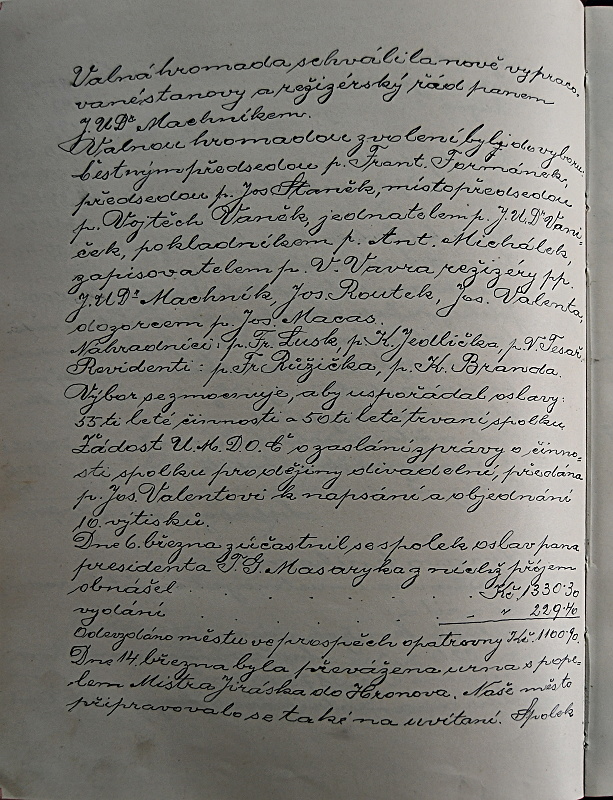 Valná hromada schválila nově vypraco-
vané stanovy a režizérský řád panem
J.U.Dr Machníkem.
Valnou hromadou zvoleni byli do výboru
čestným předsedou p. Frant. Formánek,
předsedou p. Jos Staněk, místopředsedou
p. Vojtěch Vaněk, jednatelem p. J.U.Dr Vaní-
ček, pokladníkem p. Ant. Michálek,
zapisovatelem p. V. Vavra režizéry pp.
J.U.Dr Machník, Jos. Routek, Jos. Valenta,
dozorcem p. Jos. Macas.
Nahradníci: p. Fr. Lusk, p. K. Jedlička, p. V. Tesař.
Revidenti: p. Fr Růžička, p. K. Branda.
Výbor se zmocnuje, aby uspořádal oslavy:
55ti leté činnosti a 50ti leté trvaní spolku
Žádost Ú.M.D.O.Č. o zaslání zprávy o činno-
sti spolku pro dějiny divadelní, předána
p. Jos. Valentovi k napsání a objednání
10. výtisků.
Dne 6. března zúčastnil se spolek oslav pana
presidenta T. G. Masaryka z nichž příjem
obnášel . . . . Kč. 1330.30
vydání . . . . „ 229.40
Odevzdáno městu ve prospěch opatrovny Kč. 1100.90.
Dne 14. března byla převážena urna s pope-
lem Mistra Jiráska do Hronova. Naše město
připravovalo se také na uvítaní. Spolek